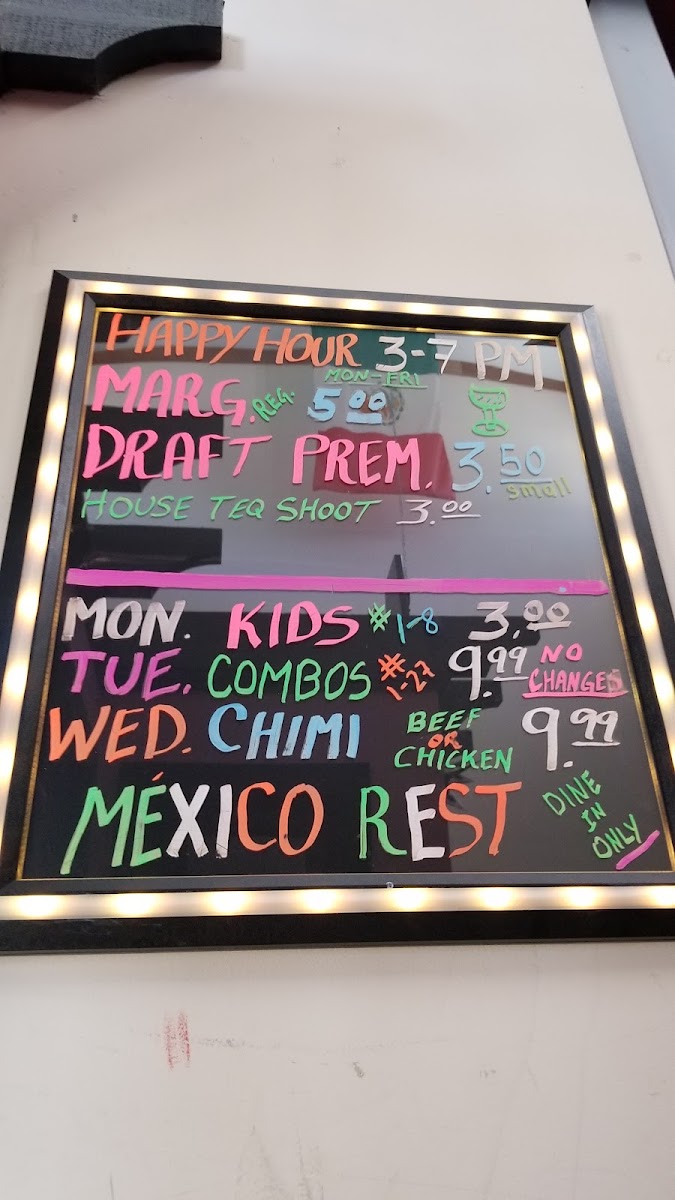 HAPPY HOUR 3-7 PM
MON-FRI
MARG. REG. 5.00
DRAFT PREM. 3.50
small
HOUSE TEQ SHOOT 3.00
MON. KIDS #1-8 3.00
TUE. COMBOS #1-27 9.99 NO CHANGES
WED. CHIMI BEEF OR CHICKEN 9.99
MÉXICO REST DINE IN ONLY